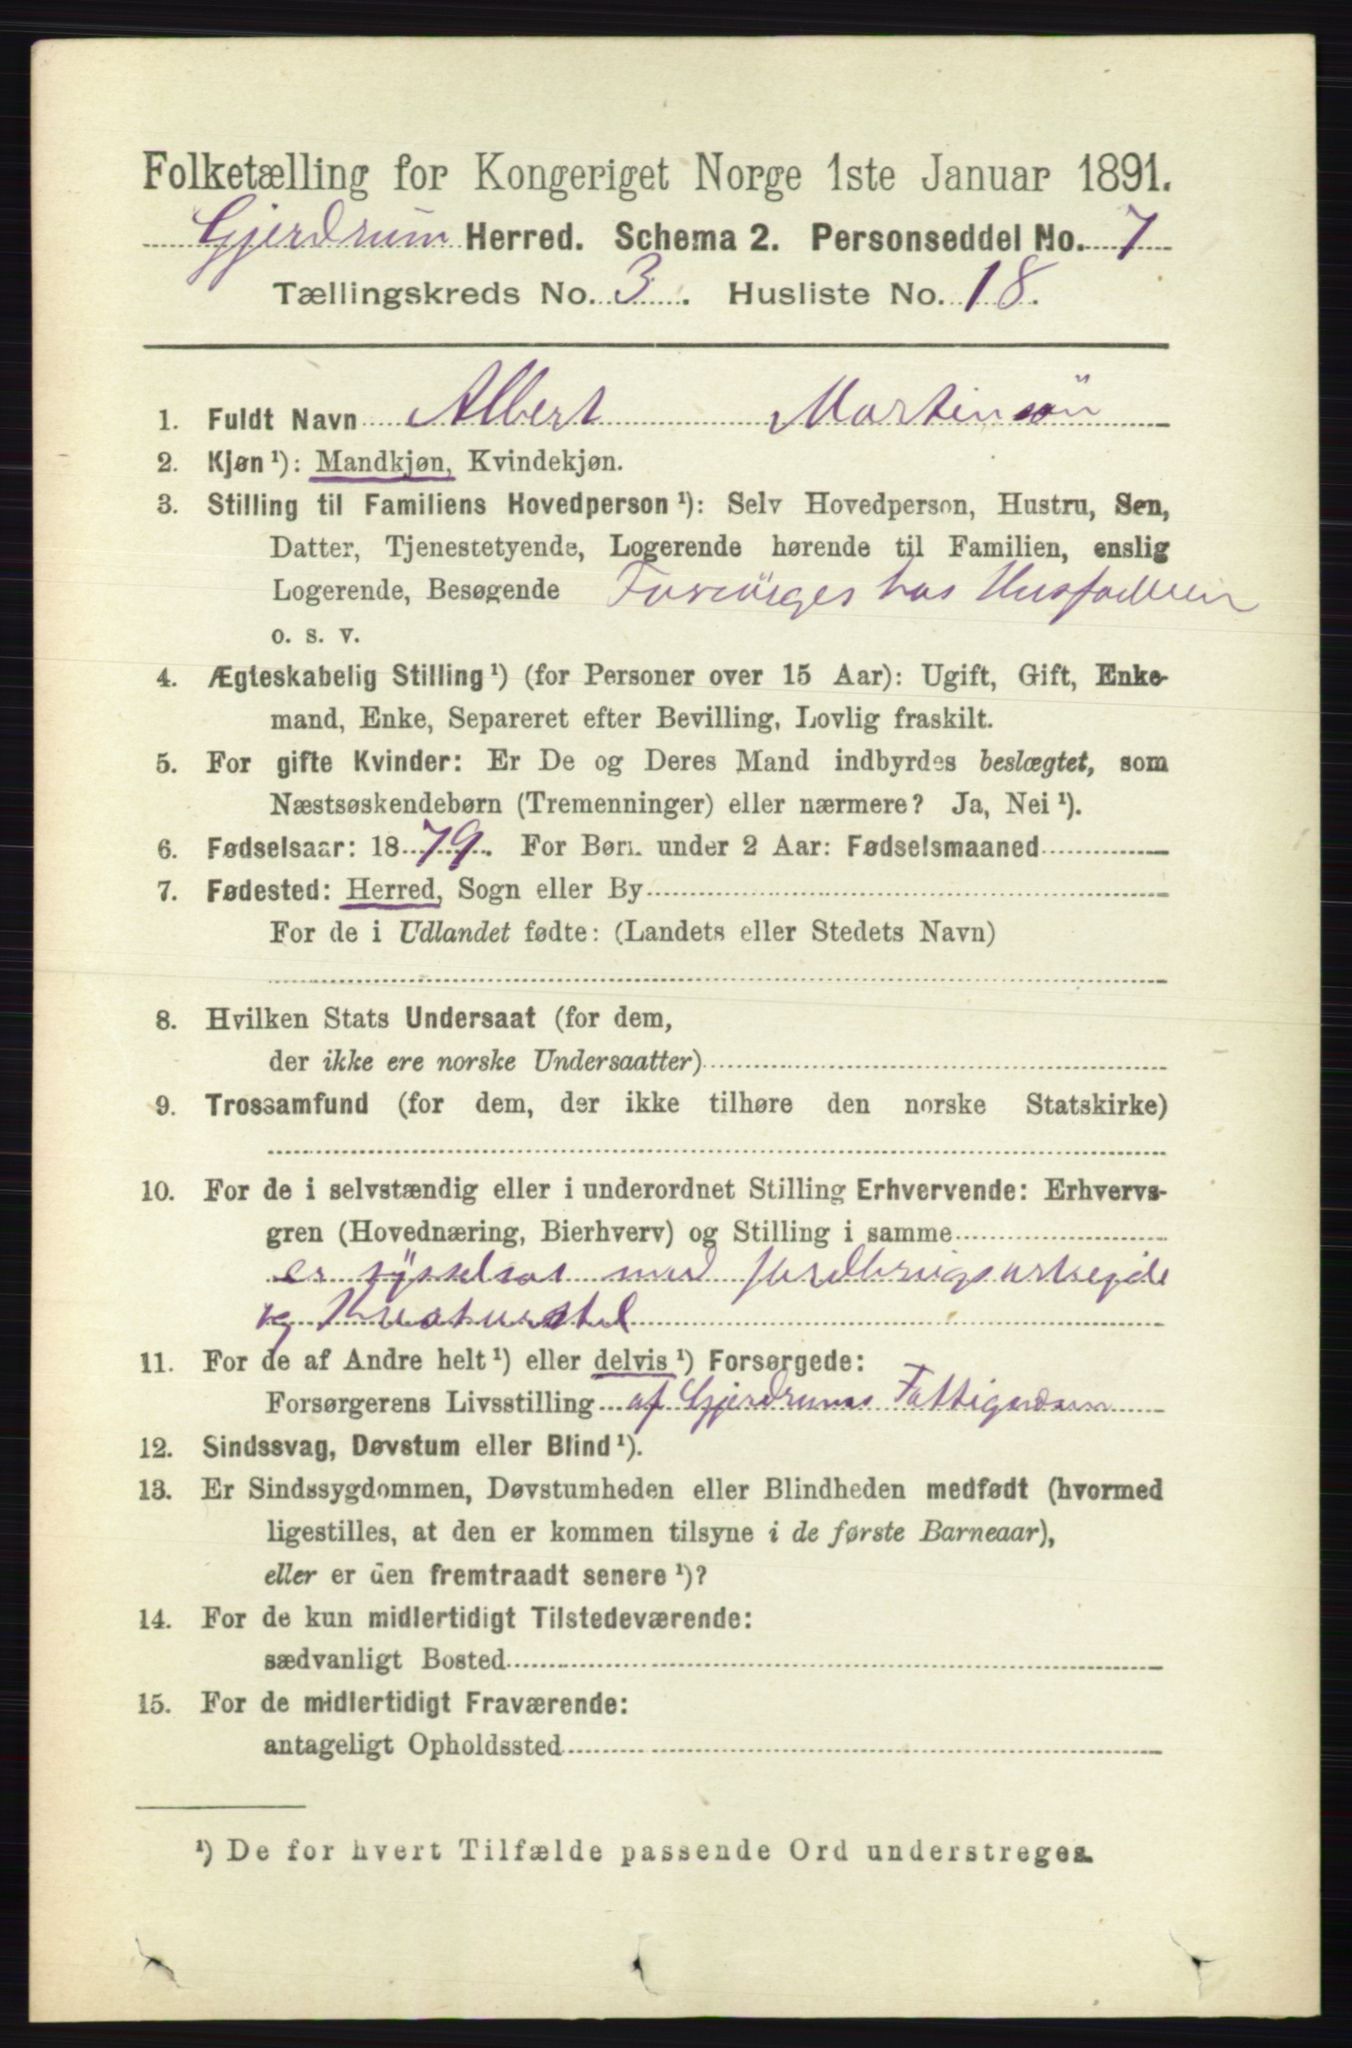 Folketælling for Kongeriget Norge 1ste Januar 1891.
Gjerdrum Herred. Schema 2. Personseddel No. 7
Tællingskreds No. 3. Husliste No. 18.
1. Fuldt Navn Albert Martinsön
2. Kjøn ¹): Mandkjøn, Kvindekjøn.
3. Stilling til Familiens Hovedperson ¹): Selv Hovedperson, Hustru, Søn,
Datter, Tjenestetyende, Logerende hørende til Familien, enslig
Logerende, Besøgende Forsörges hos Husfaderen
o. s. v.
4. Ægteskabelig Stilling ¹) (for Personer over 15 Aar): Ugift, Gift, Enke-
mand, Enke, Separeret efter Bevilling, Lovlig fraskilt.
5. For gifte Kvinder: Er De og Deres Mand indbyrdes beslægtet, som
Næstsøskendebørn (Tremenninger) eller nærmere? Ja, Nei ¹).
6. Fødselsaar: 1879. For Børn under 2 Aar: Fødselsmaaned
7. Fødested: Herred, Sogn eller By
For de i Udlandet fødte: (Landets eller Stedets Navn)
8. Hvilken Stats Undersaat (for dem,
der ikke ere norske Undersaatter)
9. Trossamfund (for dem, der ikke tilhøre den norske Statskirke)
10. For de i selvstændig eller i underordnet Stilling Erhvervende: Erhvervs-
gren (Hovednæring, Bierhverv) og Stilling i samme
er sysselsat med Jordbrugsarbeide
og Kreaturstel
11. For de af Andre helt ¹) eller delvis ¹) Forsørgede:
Forsørgerens Livsstilling af Gjerdrums Fattigvæsen
12. Sindssvag, Døvstum eller Blind ¹).
13. Er Sindssygdommen, Døvstumheden eller Blindheden medfødt (hvormed
ligestilles, at den er kommen tilsyne i de første Barneaar),
eller er den fremtraadt senere ¹)?
14. For de kun midlertidigt Tilstedeværende:
sædvanligt Bosted
15. For de midlertidigt Fraværende:
antageligt Opholdssted
¹) De for hvert Tilfælde passende Ord understreges.